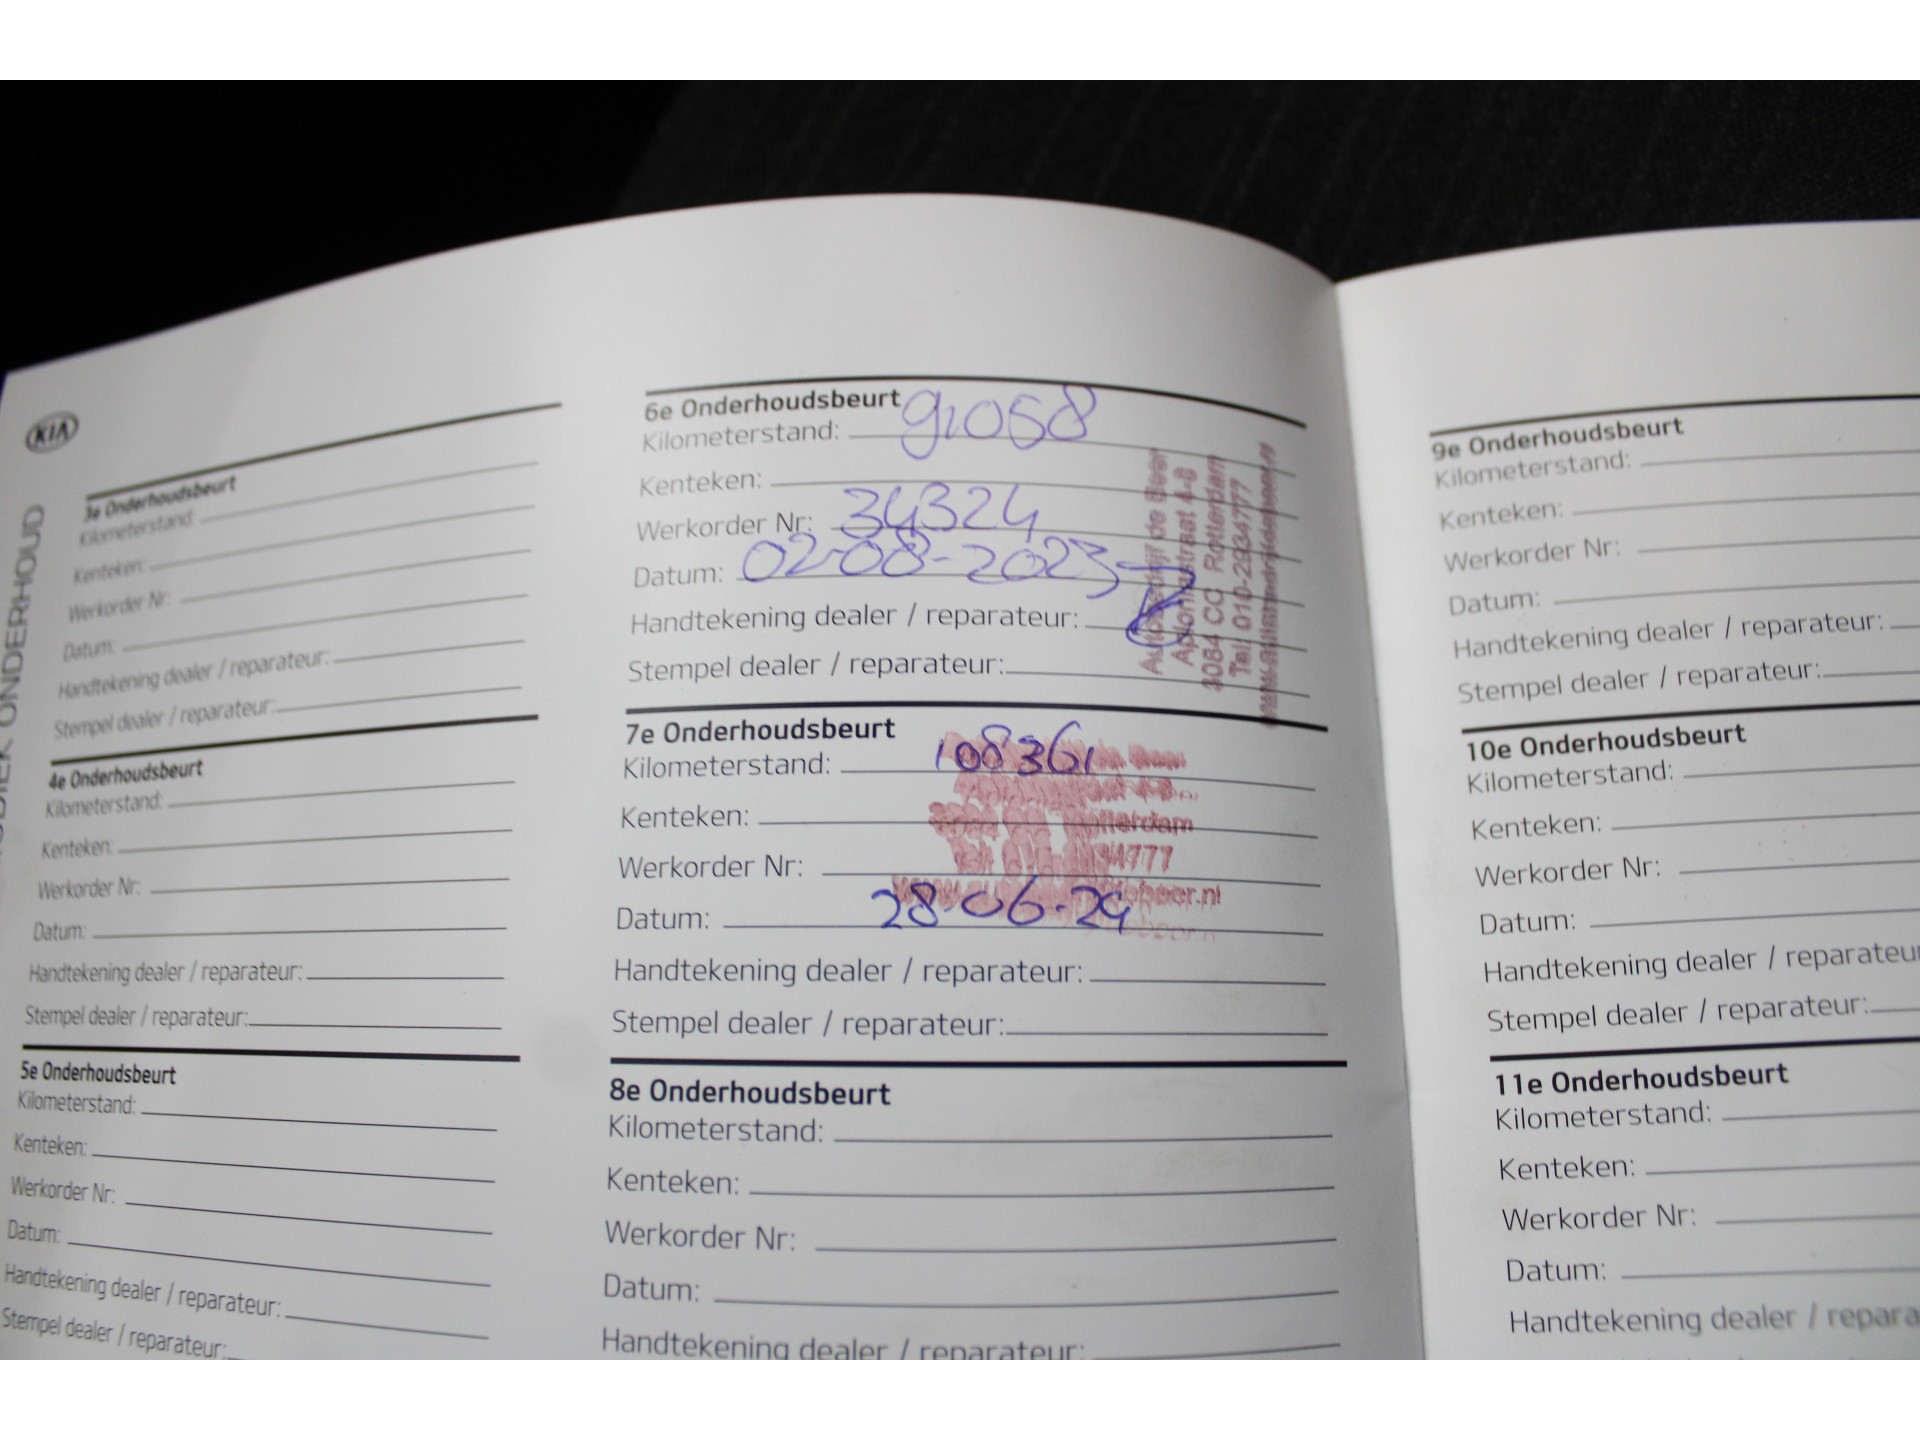 KIA
ONDERHOUD
3e Onderhoudsbeurt
Kilometerstand:
Kenteken:
Werkorder Nr:
Datum:
Handtekening dealer / reparateur:
Stempel dealer / reparateur:
4e Onderhoudsbeurt
Kilometerstand:
Kenteken:
Werkorder Nr:
Datum:
Handtekening dealer / reparateur:
Stempel dealer / reparateur:
5e Onderhoudsbeurt
Kilometerstand:
Kenteken:
Werkorder Nr:
Datum:
Handtekening dealer / reparateur:
Stempel dealer / reparateur:
6e Onderhoudsbeurt
Kilometerstand: 91068
Kenteken:
Werkorder Nr: 34324
Datum: 02-08-2023
Handtekening dealer / reparateur:
Stempel dealer / reparateur:
Autobedrijf de Beer
Aploniastraat 4-8
3084 CC Rotterdam
Tel. 010-2934777
7e Onderhoudsbeurt
Kilometerstand: 108361
Kenteken:
Werkorder Nr:
Datum: 28-06-24
Handtekening dealer / reparateur:
Stempel dealer / reparateur:
8e Onderhoudsbeurt
Kilometerstand:
Kenteken:
Werkorder Nr:
Datum:
Handtekening dealer / reparateur:
9e Onderhoudsbeurt
Kilometerstand:
Kenteken:
Werkorder Nr:
Datum:
Handtekening dealer / reparateur:
Stempel dealer / reparateur:
10e Onderhoudsbeurt
Kilometerstand:
Kenteken:
Werkorder Nr:
Datum:
Handtekening dealer / reparateu
Stempel dealer / reparateur:
11e Onderhoudsbeurt
Kilometerstand:
Kenteken:
Werkorder Nr:
Datum:
Handtekening dealer / repara